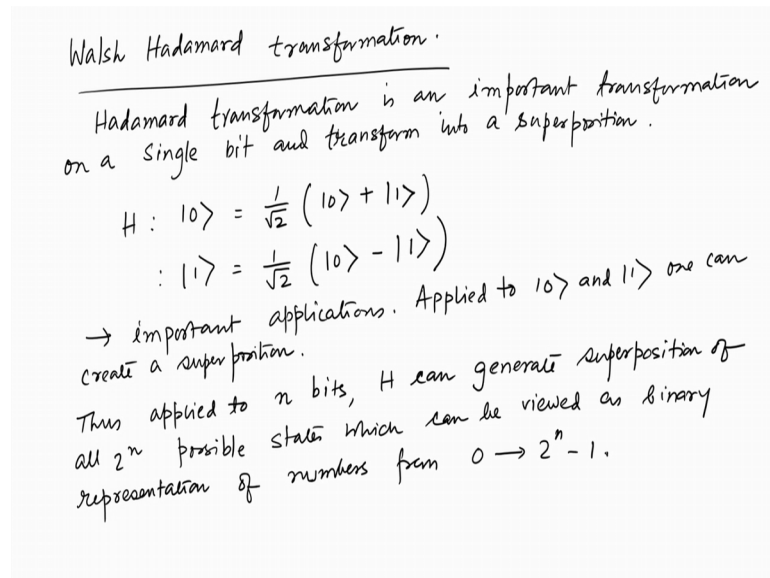 Walsh Hadamard transformation.
Hadamard transformation is an important transformation
on a single bit and transform into a superposition.
H : |0> = 1/√2 (|0> + |1>)
: |1> = 1/√2 (|0> - |1>)
→ important applications. Applied to |0> and |1> one can
create a superposition.
Thus applied to n bits, H can generate superposition of
all 2^n possible states which can be viewed as binary
representation of numbers from 0 → 2^n - 1.